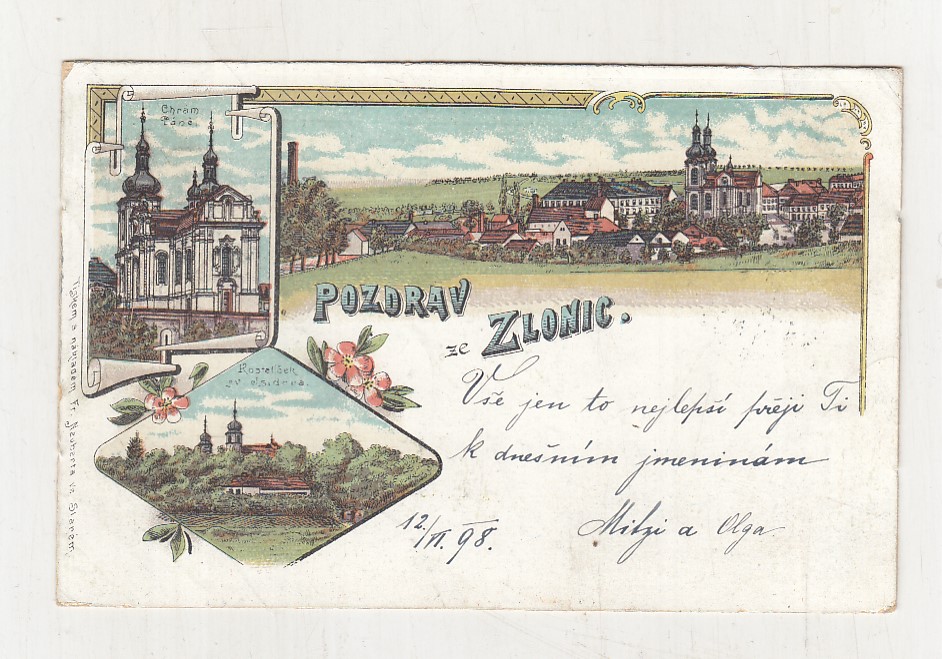 Chrám
Páně
POZDRAV
ze ZLONIC.
Kostelíček
sv. Isidora.
Vše jen to nejlepší přeji Ti
k dnešním jmeninám
Mitzi a Olga
12./VI. 98.
Tiskem a nákladem Fr. ve Slaném.